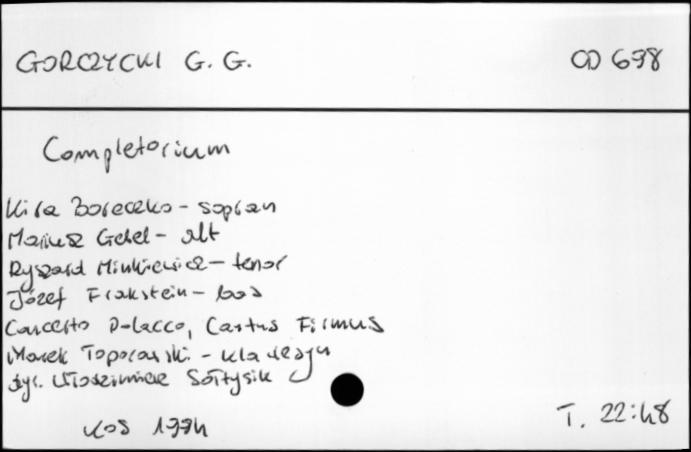 GORCZYCKI G. G.
CD 698
Completorium
Kira Boreczko - sopran
Mariusz Gebel - alt
Ryszard Minkiewicz - tenor
Józef Frakstein - bas
Concerto Polacco, Cantus Firmus
Marek Toporowski - klawesyn
dyr. Włodzimierz Sołtysik
KOS 1994
T. 22:48